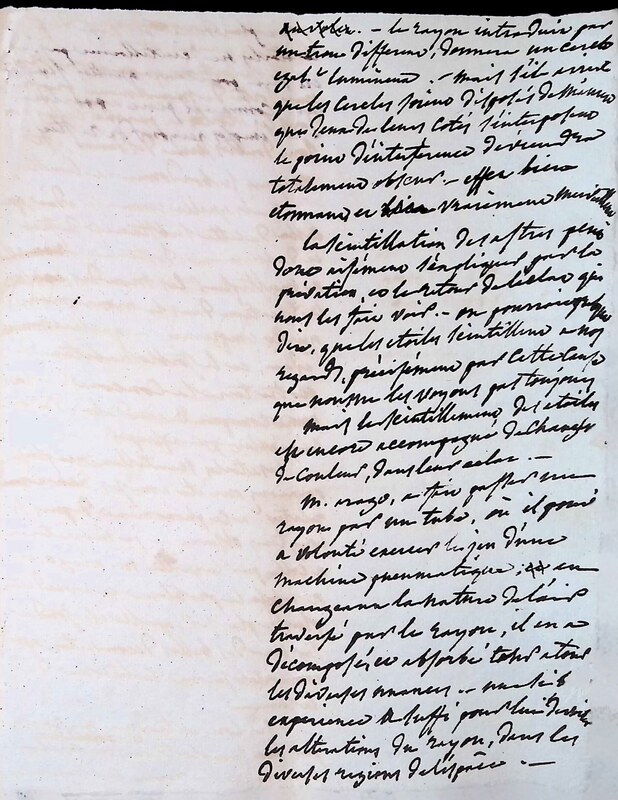 le rayon introduit par
un trou different, donnera un cercle
egal et lumineux. - mais s'il arrive
que les cercles soient disposés de maniere
que l'un de leurs cotés s'interposent
le point d'interference deviendra
totalement obscur. - effet bien
etonnant et vraiment merveilleux
la scintillation des astres peut
donc aisément s'expliquer par la
privation, et le retour de l'eclat qui
nous les fait voir. - on pourroit
dire, que les etoiles scintillent a nos
regards, précisément par cette cause
que nous ne les voyons pas toujours
mais le scintillement des etoiles
est encore accompagné de changes
de couleur, dans leur eclat. -
m. arago, a fait passer un
rayon par un tube, où il peut
a volonté exercer le jeu d'une
machine pneumatique, en
changeant la nature de l'air
traversé par le rayon, il en a
décomposé et absorbé tour a tour
les diverses nuances. -
experience a suffi pour lui
les alterations du rayon, dans les
diverses regions de l'espace. -